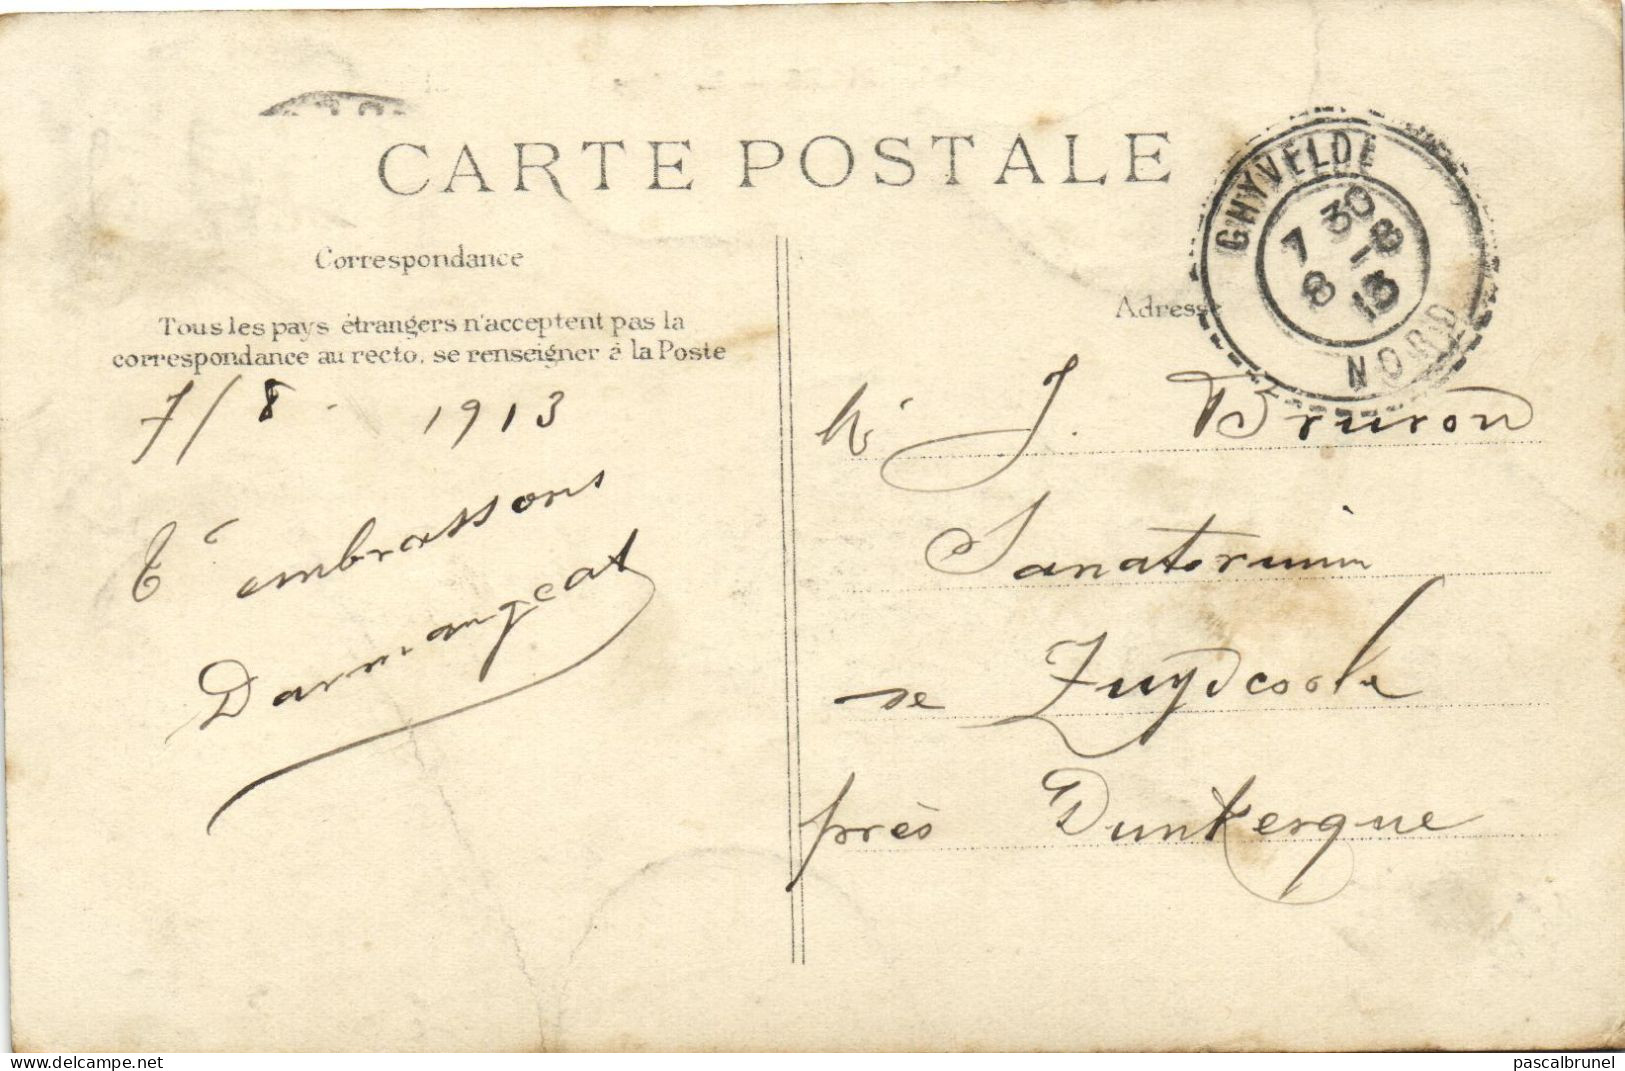 CARTE POSTALE
Correspondance
Tous les pays étrangers n'acceptent pas la
correspondance au recto, se renseigner à la Poste
7/8 - 1913
T' embrassons
Darmangeat
Adresse
GHYVELDE
7 30
8 - 8
13
NORD
Mr J. Bruron
Sanatorium
de Zuydcoote
près Dunkerque
www.delcampe.net
pascalbrunel